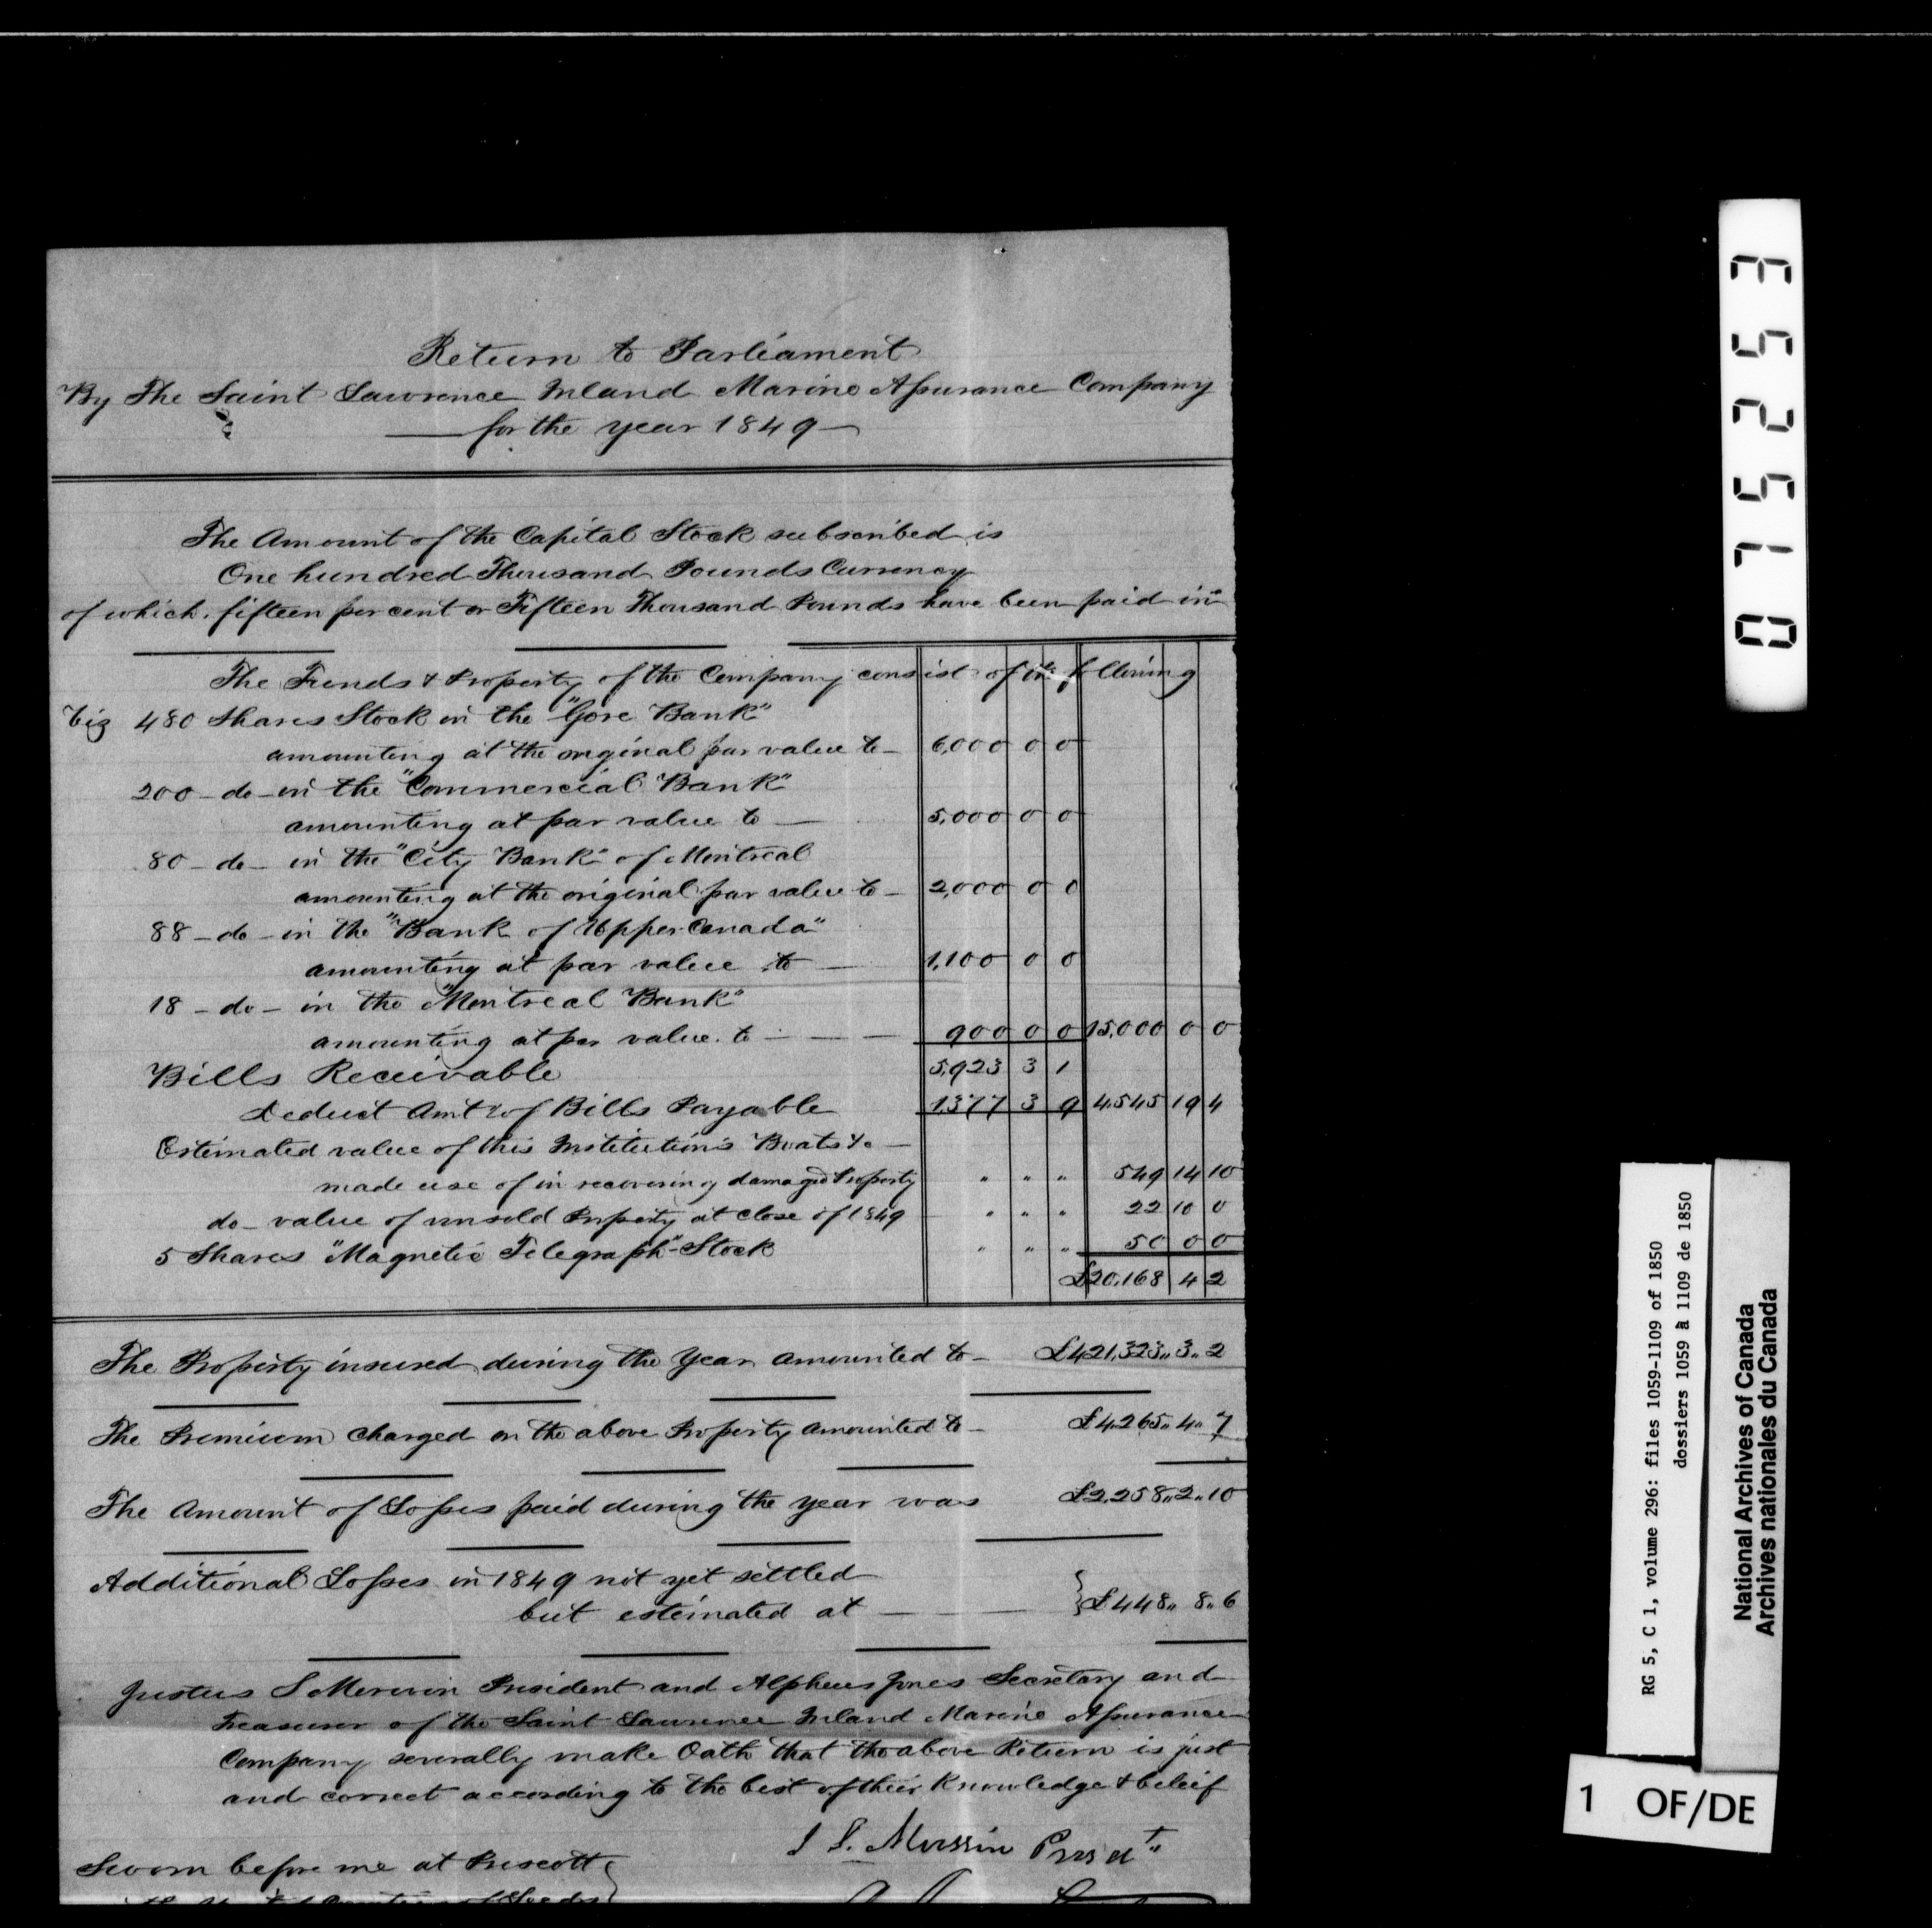 Return to Parliament
By The Saint Lawrence Inland Marine Assurance Company
for the year 1849
The Amount of the Capital Stock subscribed is
One hundred Thousand Pounds Currency
of which fifteen per cent or Fifteen Thousand Pounds have been paid in
The Funds & Property of the Company consist of the following
Viz 480 Shares Stock in the "Gore Bank"
amounting at the original par value to — 6,000 0 0
200 - do - in the "Commercial Bank"
amounting at par value to — 5,000 0 0
80 - do - in the "City Bank" of Montreal
amounting at the original par value to — 2,000 0 0
88 - do - in the "Bank of Upper Canada"
amounting at par value to — 1,100 0 0
18 - do - in the "Montreal Bank"
amounting at par value to — 900 0 0 15,000 0 0
Bills Receivable 5,923 3 1
Deduct Amt of Bills Payable 1,377 3 9 4,545 19 4
Estimated value of this Institution's Boats &c —
made use of in recovering damaged Property " " " 549 14 10
do - value of unsold Property at close of 1849 " " " 22 10 0
5 Shares "Magnetic Telegraph" Stock " " " 50 0 0
£20,168 4 2
The Property insured during the Year amounted to — £421,323,, 3,, 2
The Premium charged on the above Property amounted to — £4,265,, 4,, 7
The Amount of Losses paid during the year was £2,258,, 2,, 10
Additional Losses in 1849 not yet settled
but estimated at — } £448,, 8,, 6
Justus S Merwin President and Alpheus Jones Secretary and
Treasurer of the Saint Lawrence Inland Marine Assurance
Company severally make Oath that the above Return is just
and correct according to the best of their Knowledge & beleif
J S. Merwin Presdt
Sworn before me at Prescott
075253
RG 5, C 1, volume 296: files 1059-1109 of 1850
dossiers 1059 à 1109 de 1850
National Archives of Canada
Archives nationales du Canada
1 OF/DE